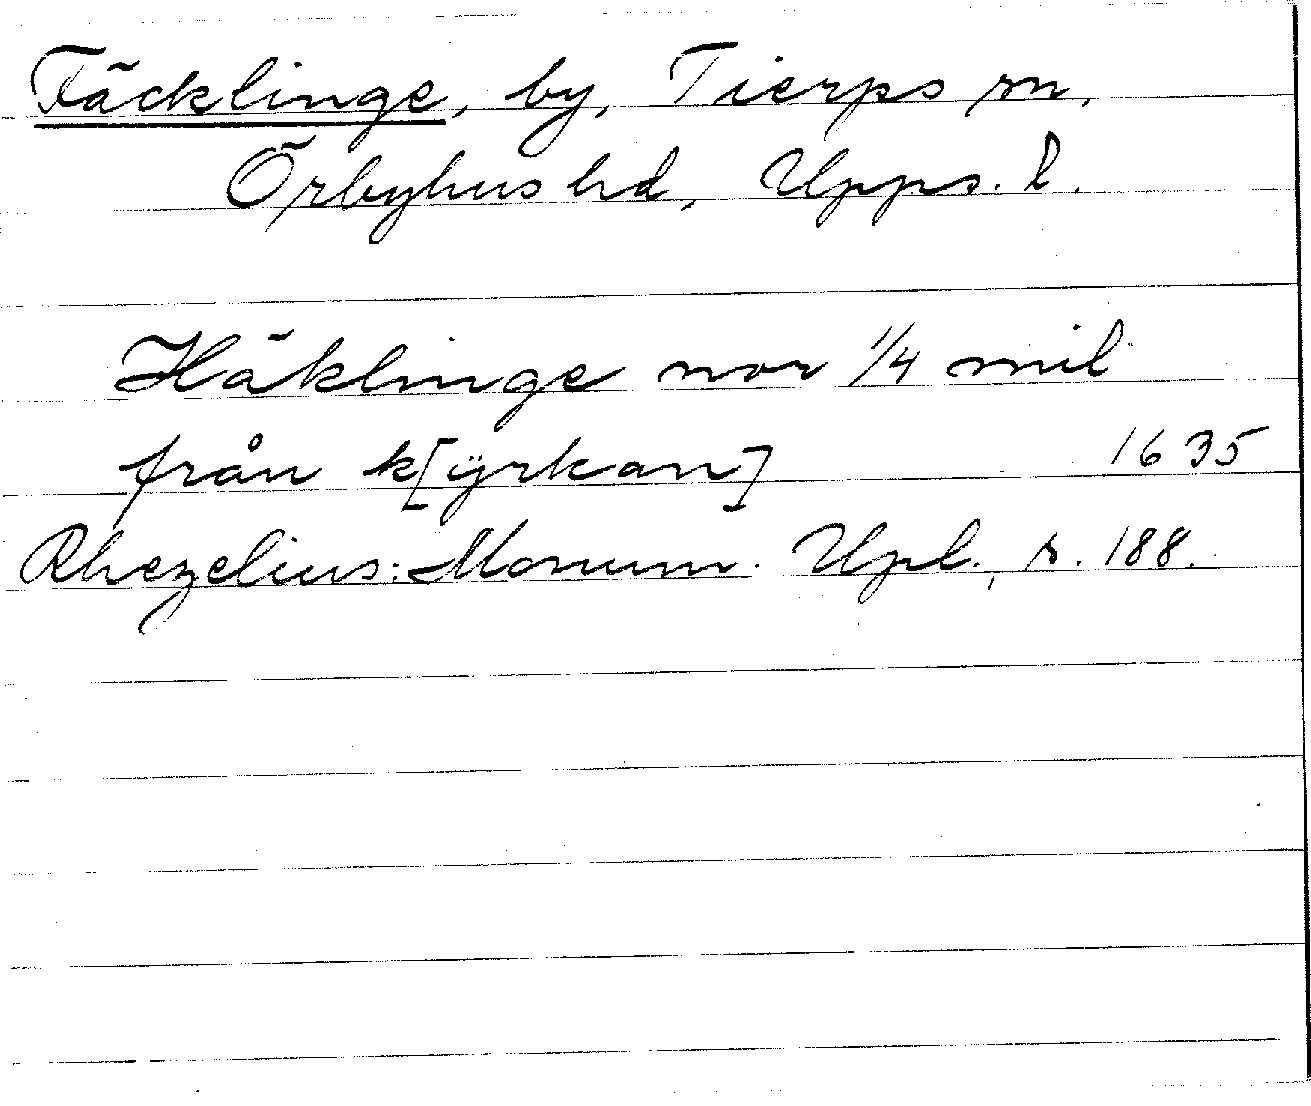 Fäcklinge, by, Tierps sn,
Örbyhus hd, Upps. l.
Häklinge nor 1/4 mil
från k[ÿrkan] 1635
Rhezelius: Monum. Upl., s. 188.